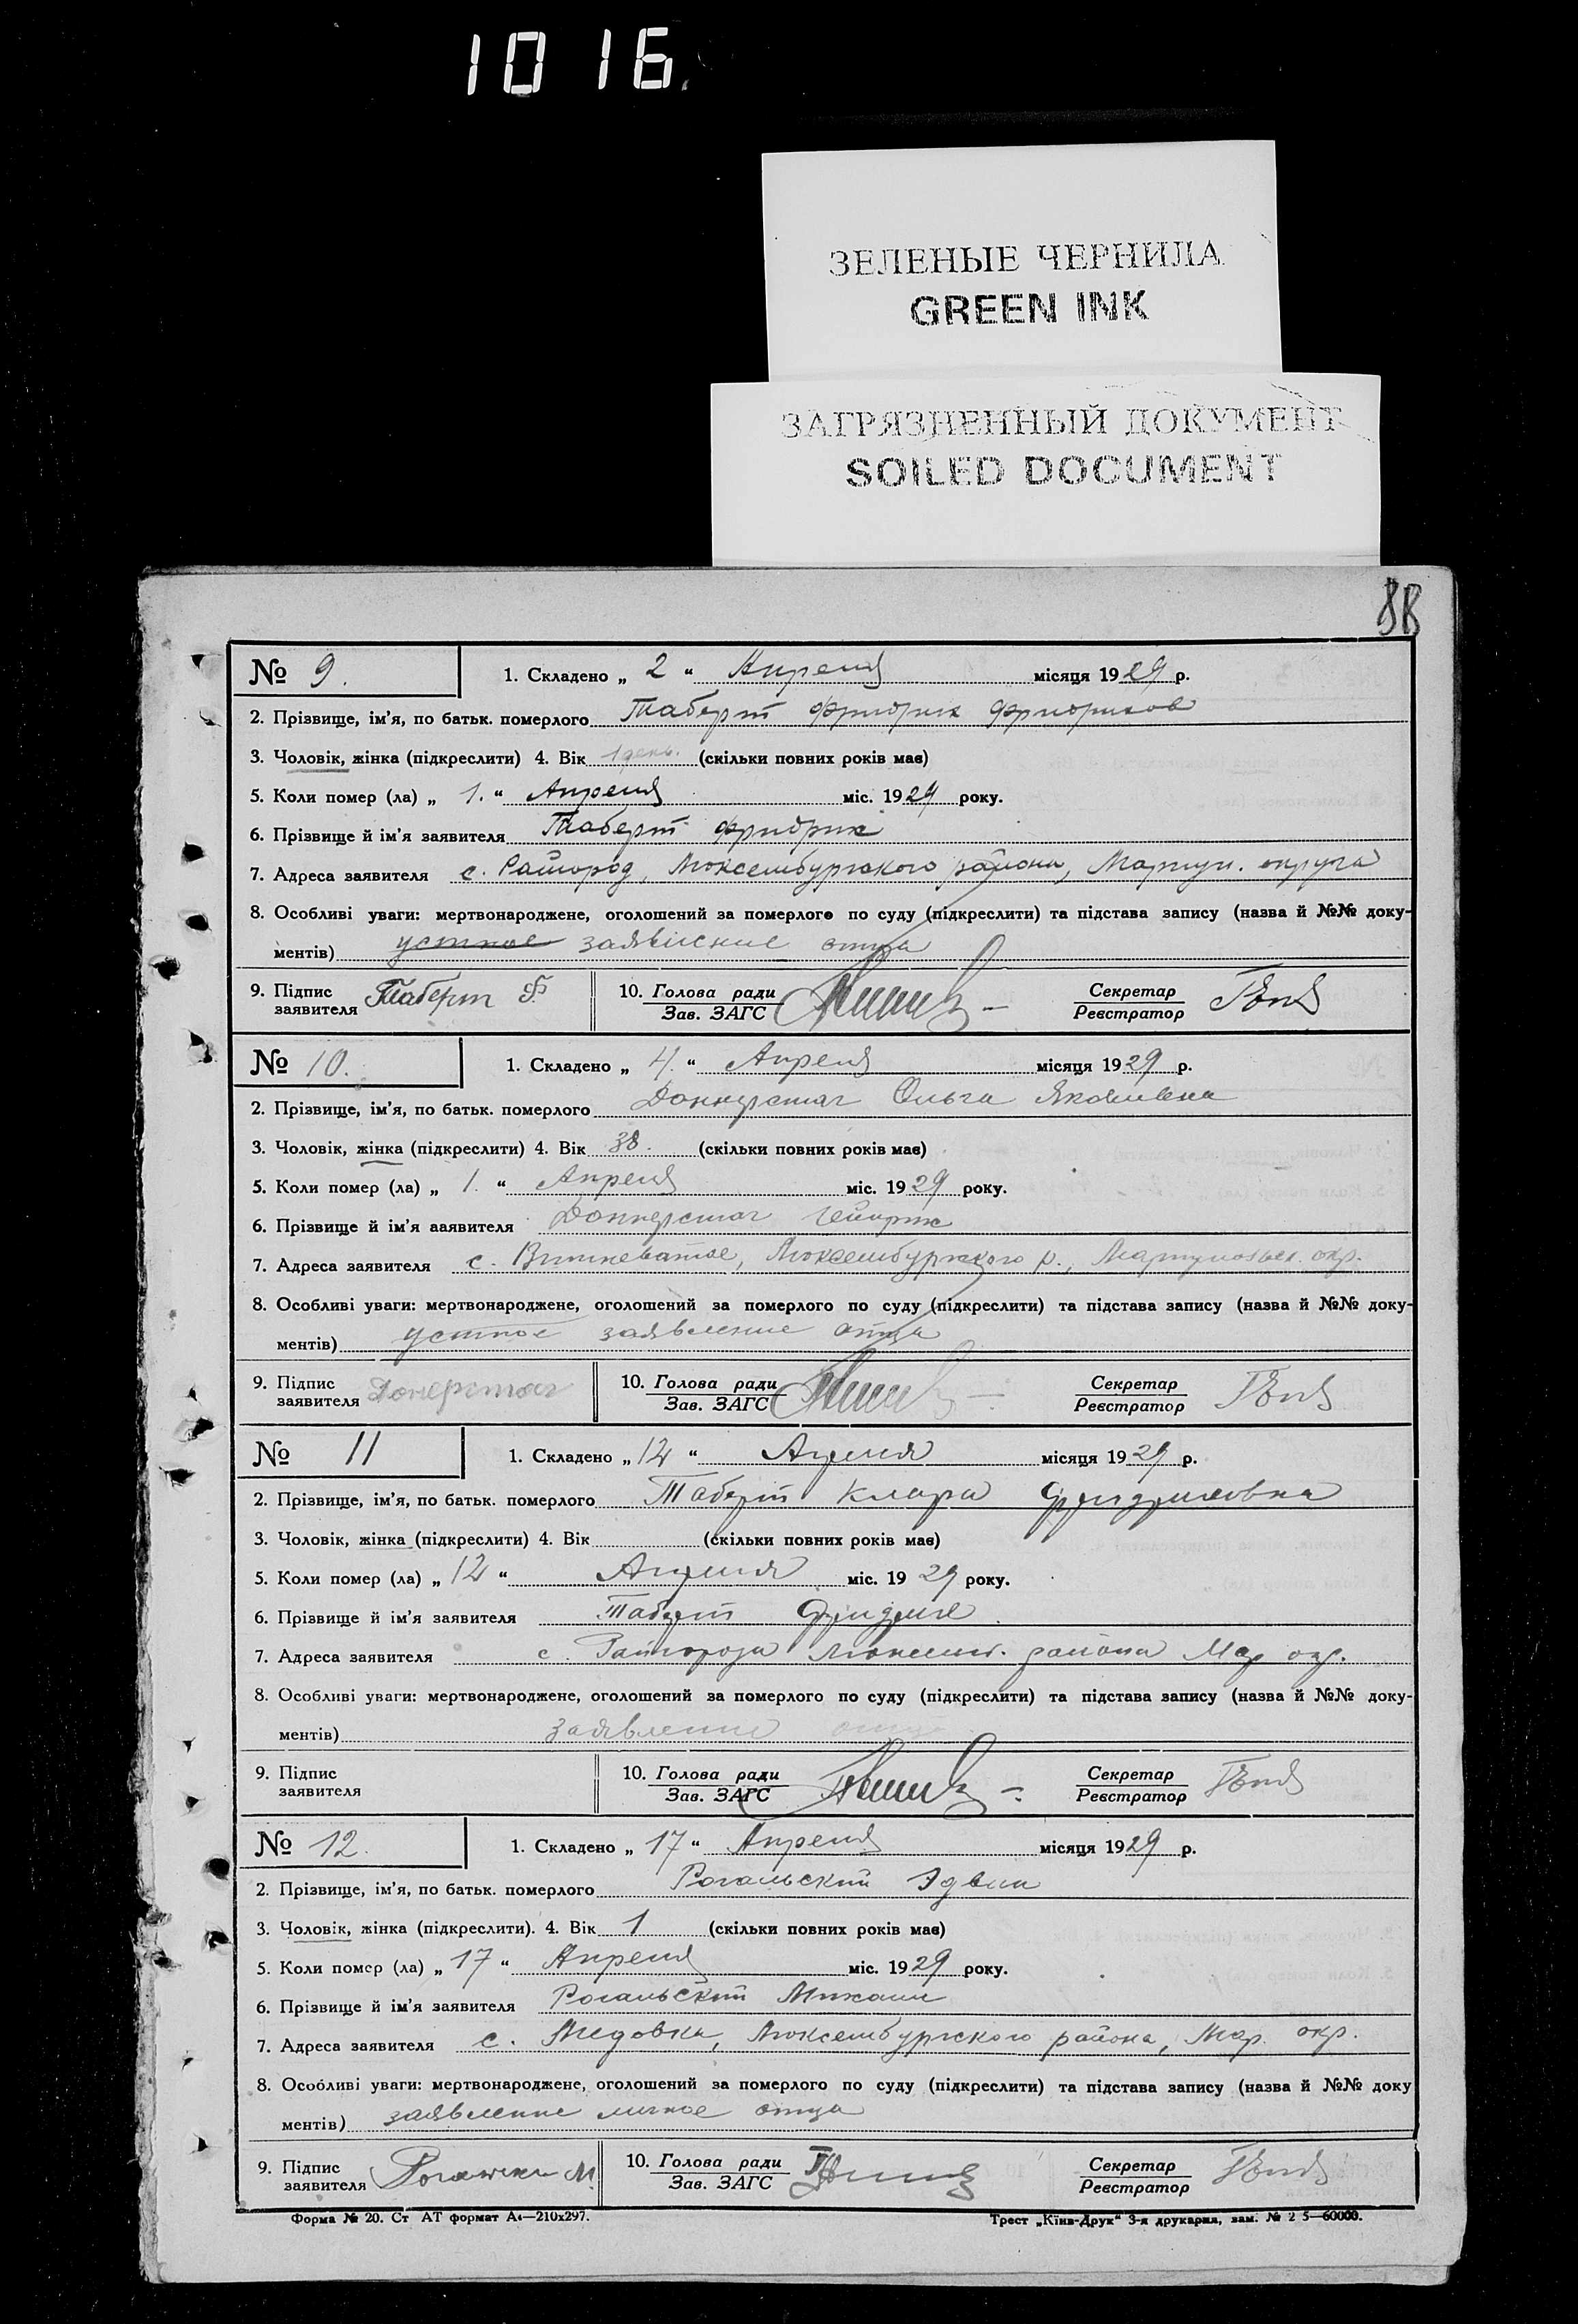 10 16.
ЗЕЛЕНЫЕ ЧЕРНИЛА
GREEN INK
ЗАГРЯЗНЕННЫЙ ДОКУМЕНТ
SOILED DOCUMENT
№ 9. 1. Складено „ 2 “ Апреля місяця 1929 р.
2. Прізвище, ім'я, по батьк. померлого Таберт Фридрих Фридрихов
3. Чоловік, жінка (підкреслити) 4. Вік 1 день. (скільки повних років має)
5. Коли помер (ла) „ 1. “ Апреля міс. 1929 року.
6. Прізвище й ім'я заявителя Таберт Фридрих
7. Адреса заявителя с. Райгород, Люксембургского района, Мариуп. округа
8. Особливі уваги: мертвонароджене, оголошений за померлого по суду (підкреслити) та підстава запису (назва й №№ доку-
ментів) устное заявление отца
9. Підпис заявителя Таберт Ф 10. Голова ради Зав. ЗАГС Секретар Реєстратор
№ 10. 1. Складено „ 4. “ Апреля місяця 1929 р.
2. Прізвище, ім'я, по батьк. померлого Доннерстаг Ольга Яковлевна
3. Чоловік, жінка (підкреслити) 4. Вік 38. (скільки повних років має)
5. Коли помер (ла) „ 1. “ Апреля міс. 1929 року.
6. Прізвище й ім'я ааявителя Доннерстаг Гейнрих
7. Адреса заявителя с. Вишневатое, Люксембургского р., Мариупольск. окр.
8. Особливі уваги: мертвонароджене, оголошений за померлого по суду (підкреслити) та підстава запису (назва й №№ доку-
ментів) устное заявление отца
9. Підпис заявителя Донерстаг 10. Голова ради Зав. ЗАГС Секретар Реєстратор
№ 11 1. Складено „ 12 “ Апреля місяця 1929 р.
2. Прізвище, ім'я, по батьк. померлого Таберт Клара Фридриховна
3. Чоловік, жінка (підкреслити) 4. Вік (скільки повних років має)
5. Коли помер (ла) „ 12 “ Апреля міс. 1929 року.
6. Прізвище й ім'я заявителя Таберт Фридрих
7. Адреса заявителя с. Райгород Люксемб. района Мар окр.
8. Особливі уваги: мертвонароджене, оголошений за померлого по суду (підкреслити) та підстава запису (назва й №№ доку-
ментів) заявление отца
9. Підпис заявителя 10. Голова ради Зав. ЗАГС Секретар Реєстратор
№ 12. 1. Складено „ 17 “ Апреля місяця 1929 р.
2. Прізвище, ім'я, по батьк. померлого Рогальский Эдвин
3. Чоловік, жінка (підкреслити). 4. Вік 1 (скільки повних років має)
5. Коли помер (ла) „ 17 “ Апреля міс. 1929 року.
6. Прізвище й ім'я заявителя Рогальский Михаил
7. Адреса заявителя с. Медовка, Люксембургского района, Мар. окр.
8. Особливі уваги: мертвонароджене, оголошений за померлого по суду (підкреслити) та підстава запису (назва й №№ доку
ментів) заявление личное отца
9. Підпис заявителя 10. Голова ради Зав. ЗАГС Секретар Реєстратор
Форма № 20. Ст АТ формат А4—210х297. Трест „Київ-Друк“ 3-я друкарня, зам. № 2 5—60000.